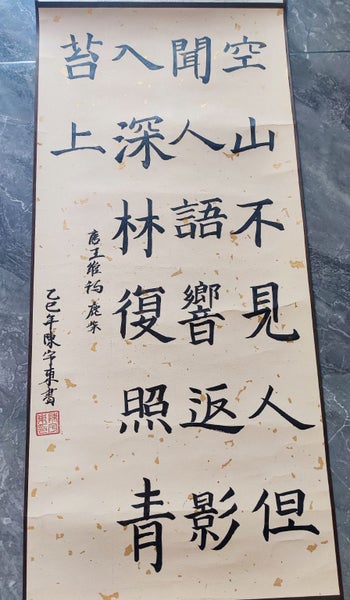 空山不見人但
聞人語響返影
入深林復照青
苔上
唐王維詩鹿柴
乙巳年陳宇東書